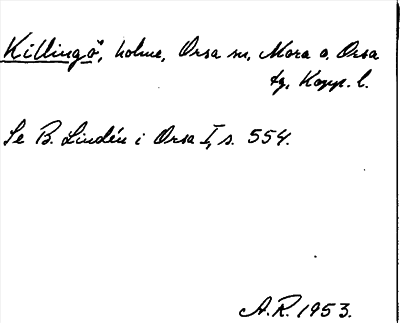 Killingö, holme, Orsa sn, Mora o. Orsa
tg, Kopp. l.
Se B. Lindén i Orsa I, s. 554.
A.R. 1953.